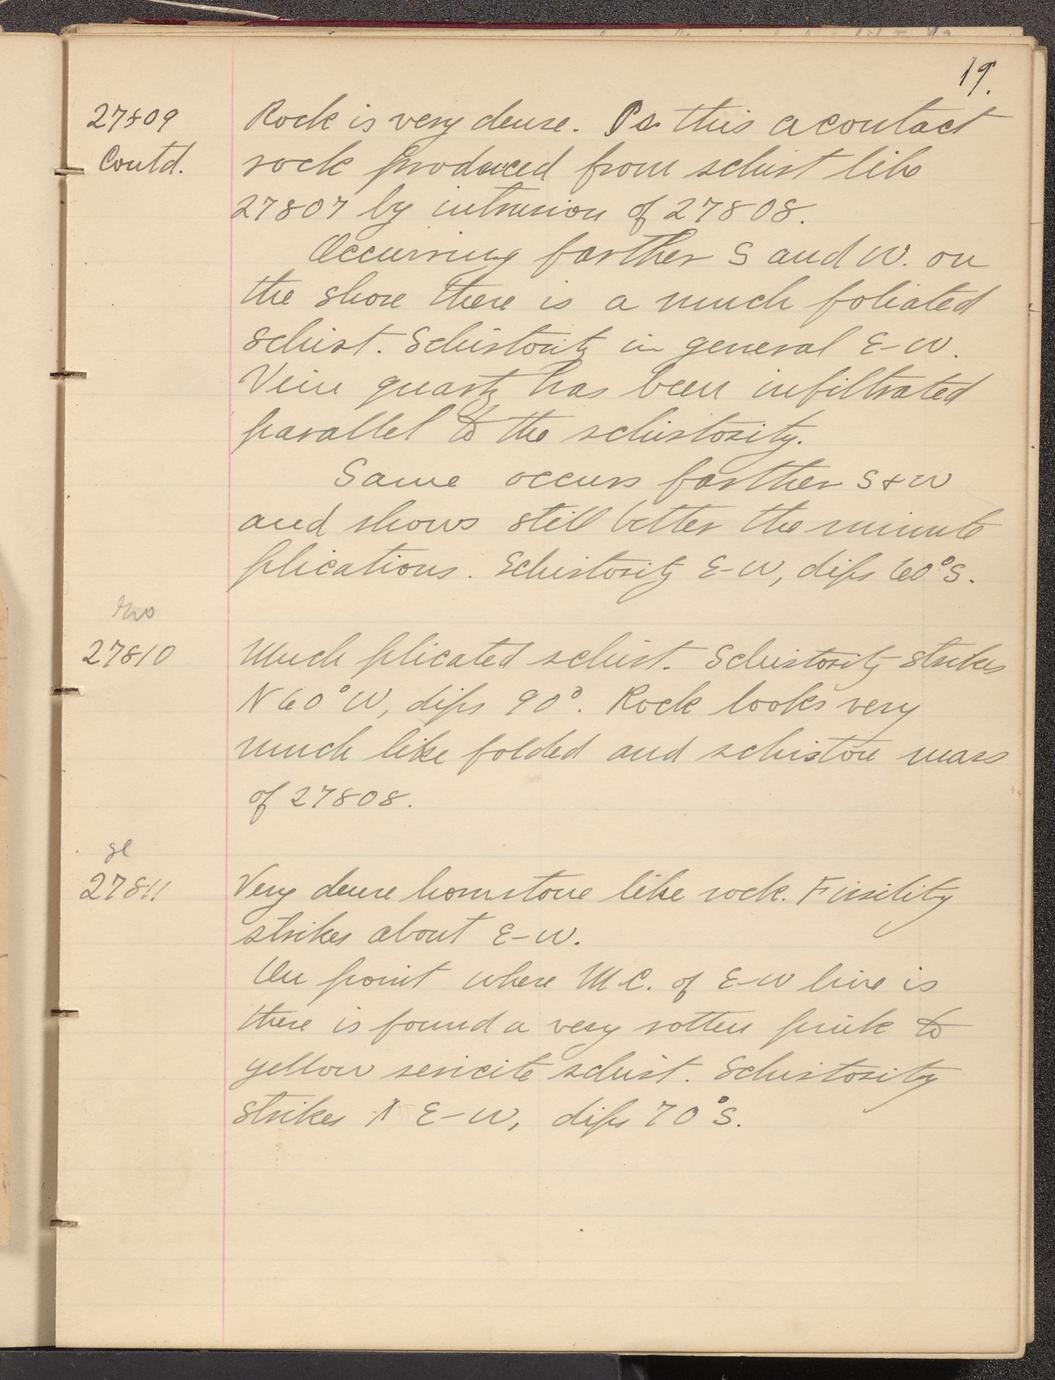 19.
27809 Rock is very dense. Is this a contact
Contd. rock produced from schist like
27807 by intrusion of 27808.
Occurring farther S and W. on
the shore there is a much foliated
schist. Schistosity in general E-W.
Vein quartz has been infiltrated
parallel to the schistosity.
Same occurs farther S & W
and shows still better the minute
plications. Schistosity E-W, dips 60° S.
27810 Much plicated schist. Schistosity strikes
N 60° W, dips 90°. Rock looks very
much like folded and schistose mass
of 27808.
gl
27811 Very dense hornstone like rock. Fissility
strikes about E-W.
On point where M.C. of E-W line is
there is found a very rotten pink to
yellow sericite schist. Schistosity
strikes E-W, dips 70° S.